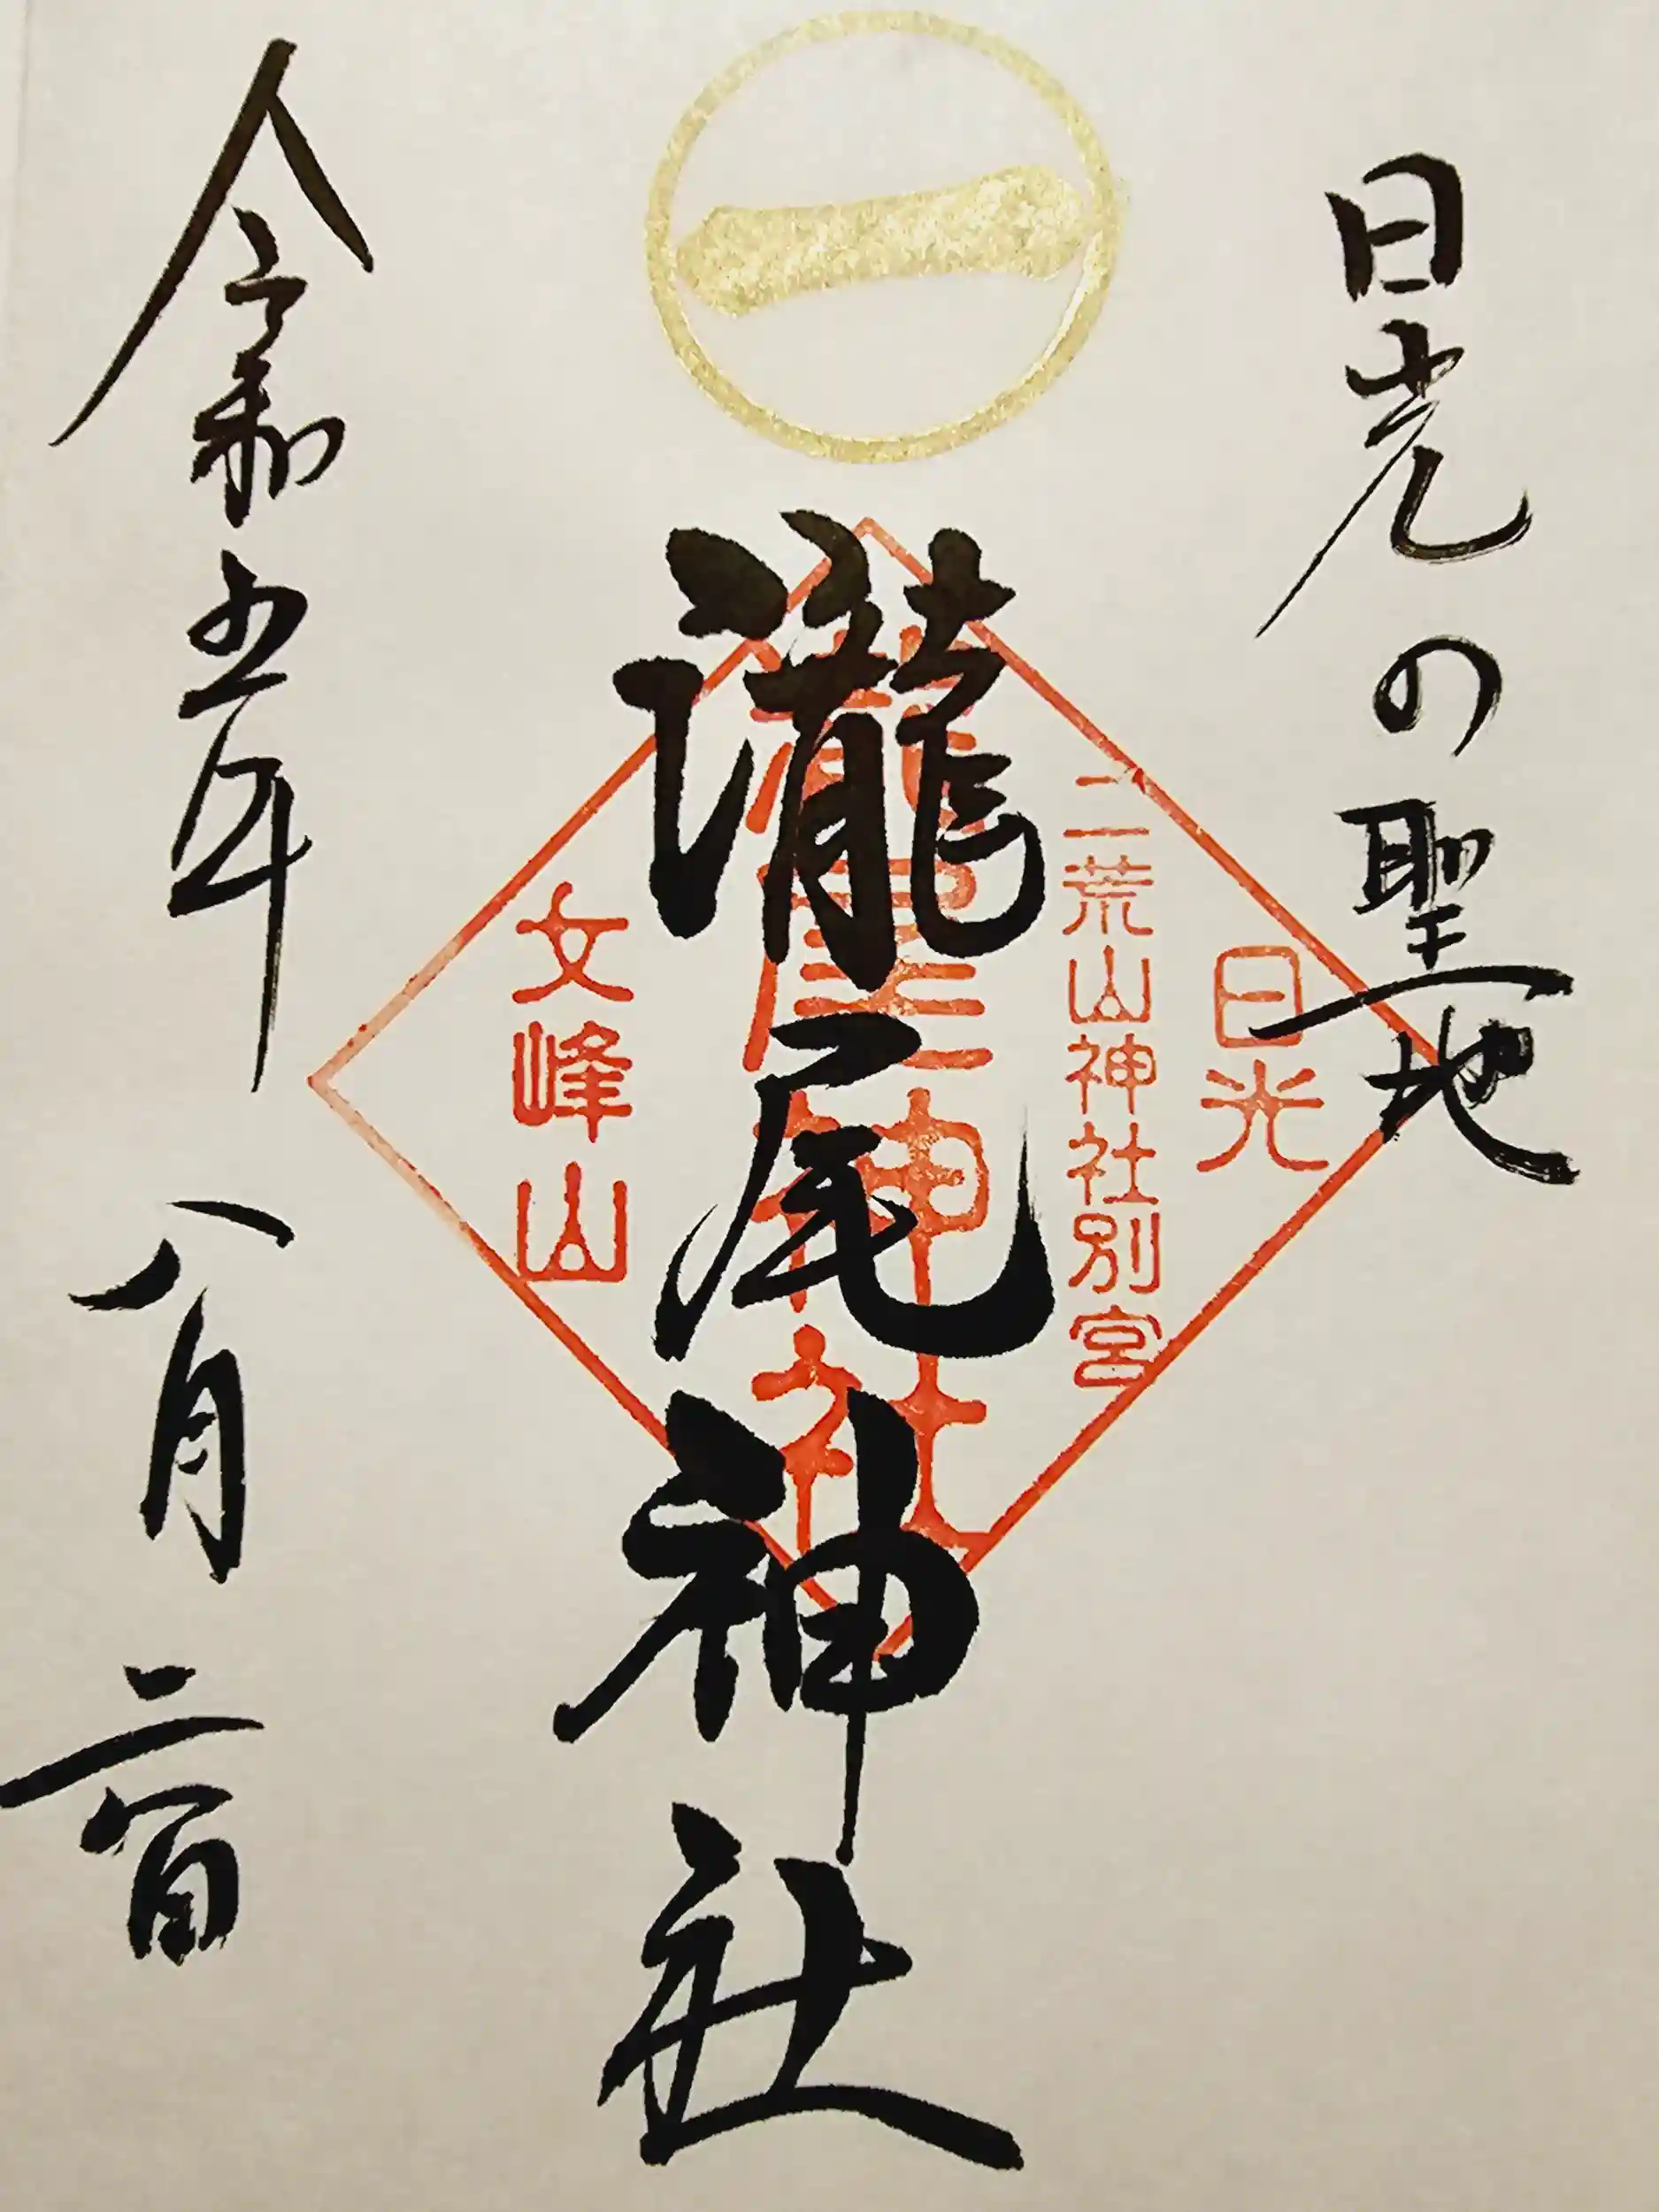 一
日光の聖地
日光
二荒山神社別宮
瀧尾神社
瀧尾神社
文峰山
令和五年 八月 二日